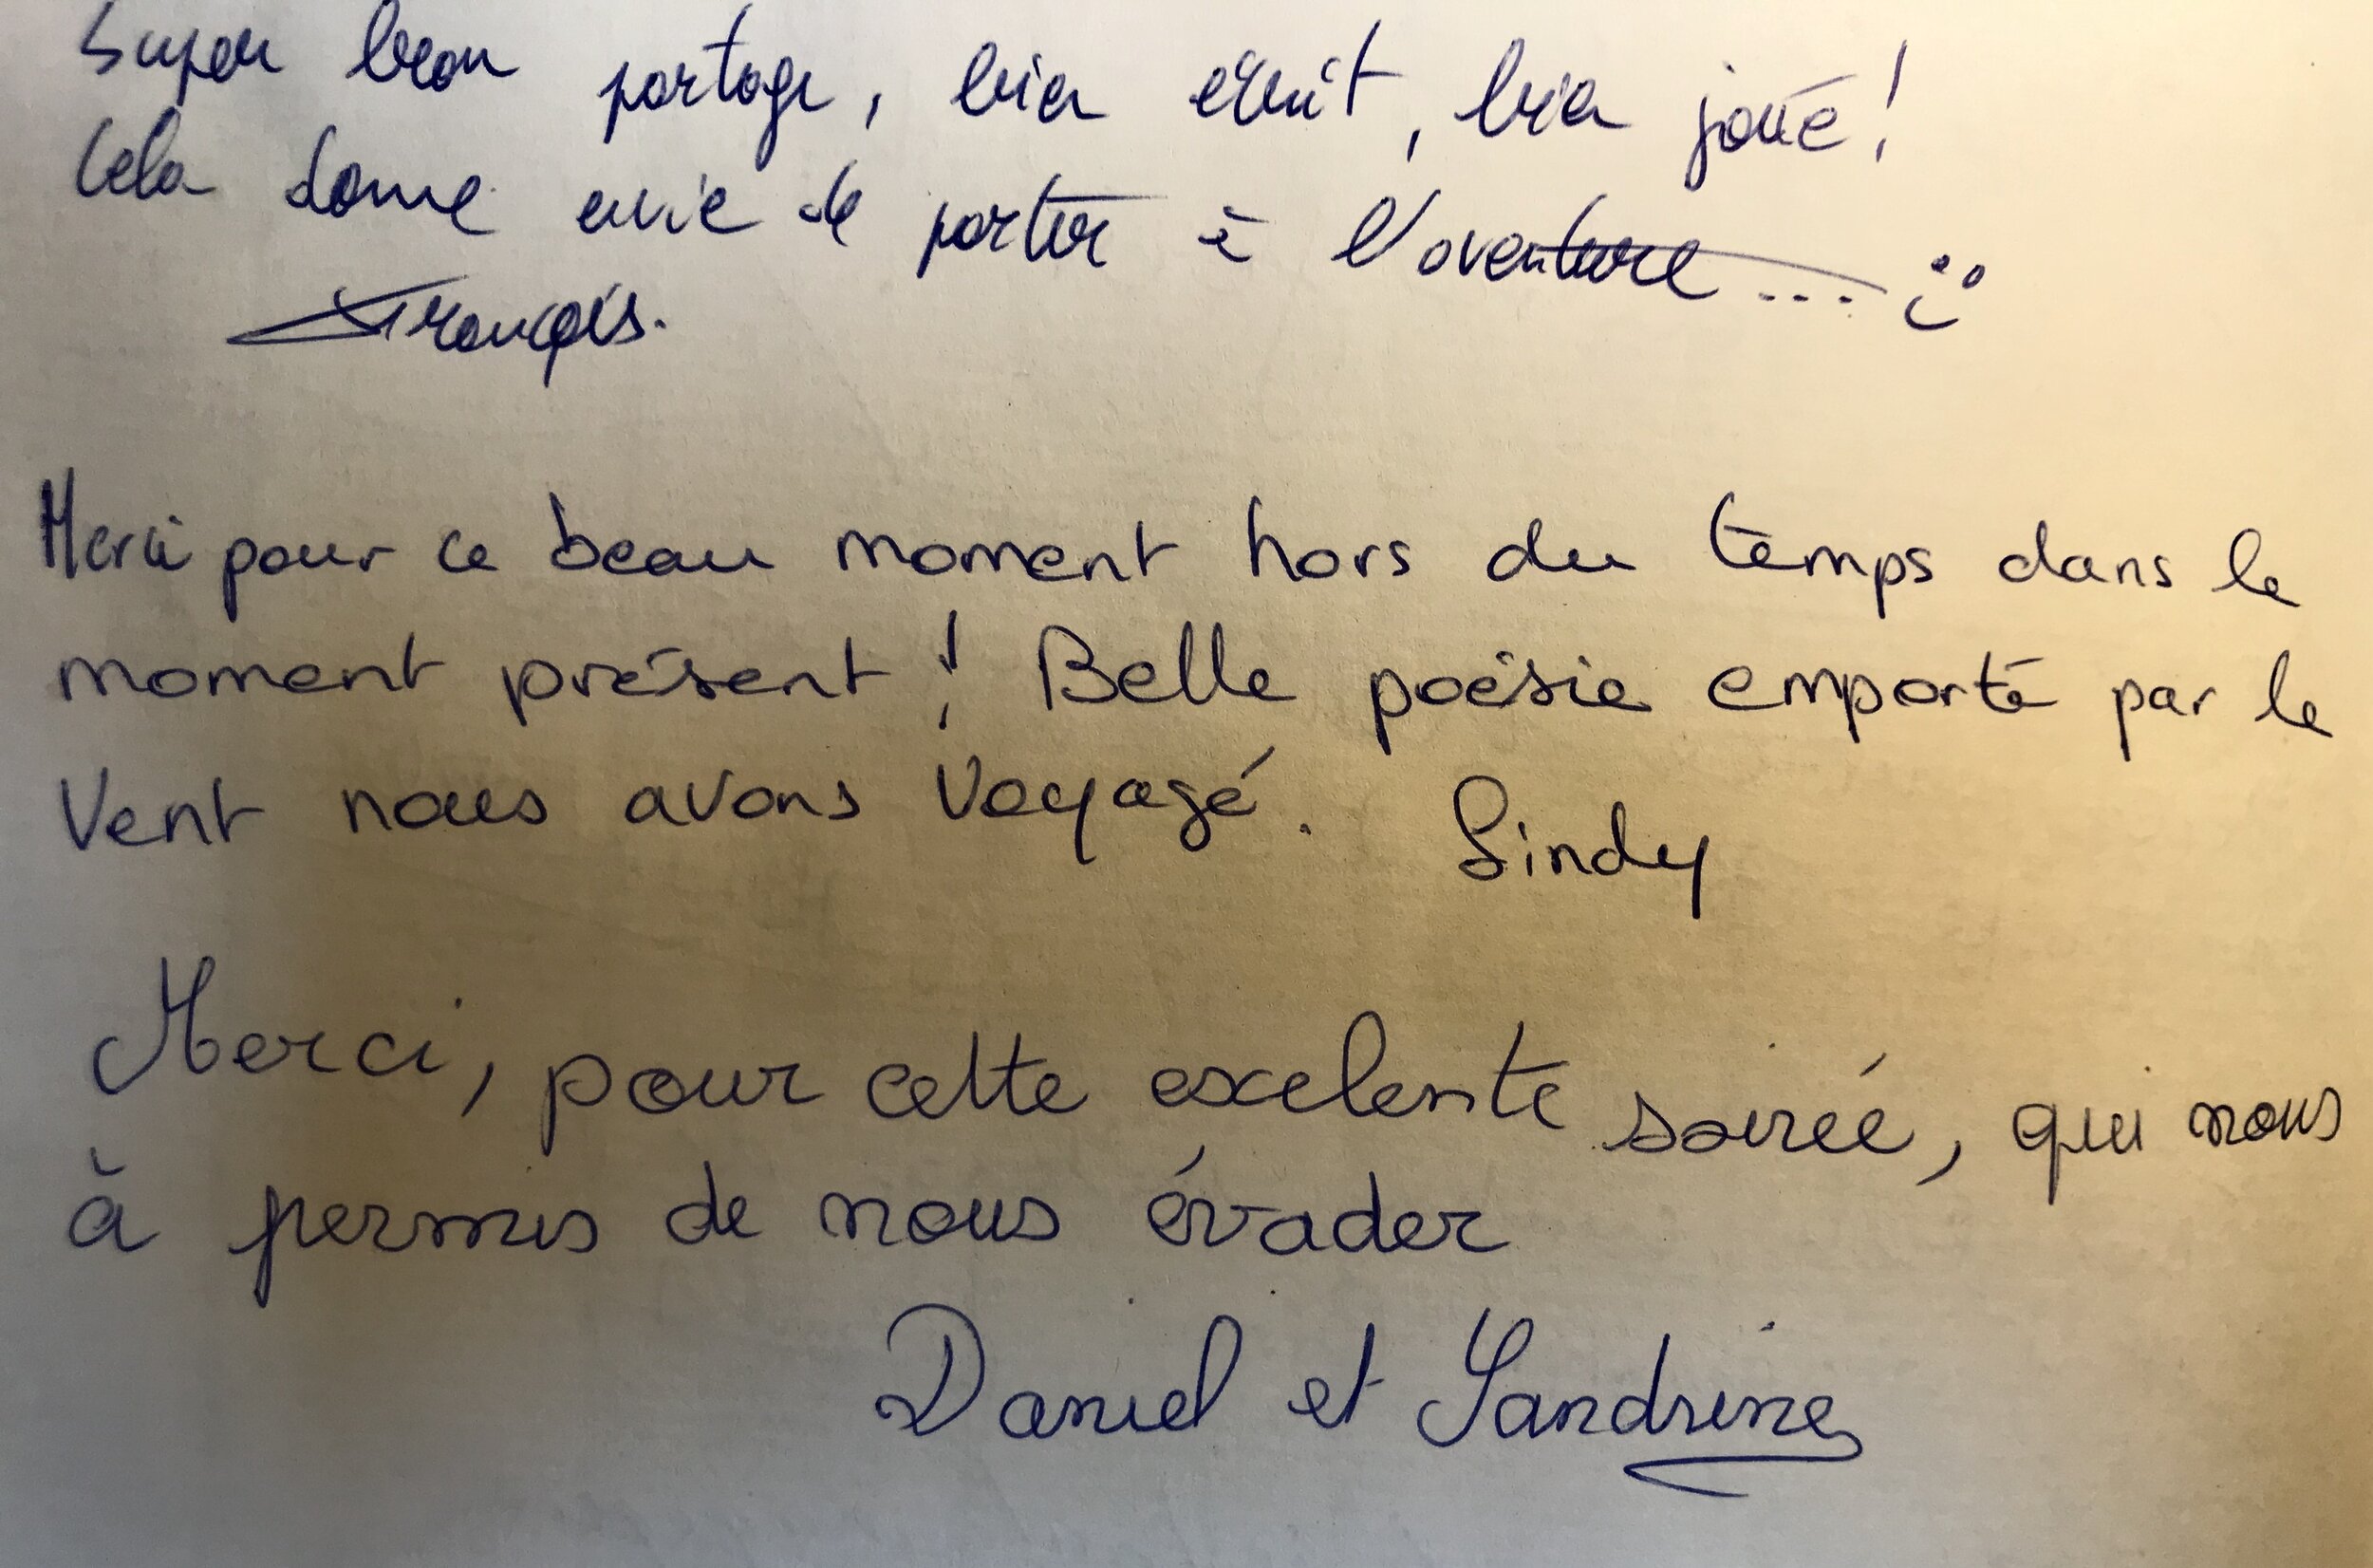 Super beau partage, bien écrit, bien joué !
Cela donne envie de partir à l'aventure ... :)
François.
Merci pour ce beau moment hors du temps dans le
moment présent ! Belle poésie emporté par le
Vent nous avons voyagé. Sindy
Merci, pour cette excelente soireé, qui nous
à permis de nous évader
Daniel et Sandrine